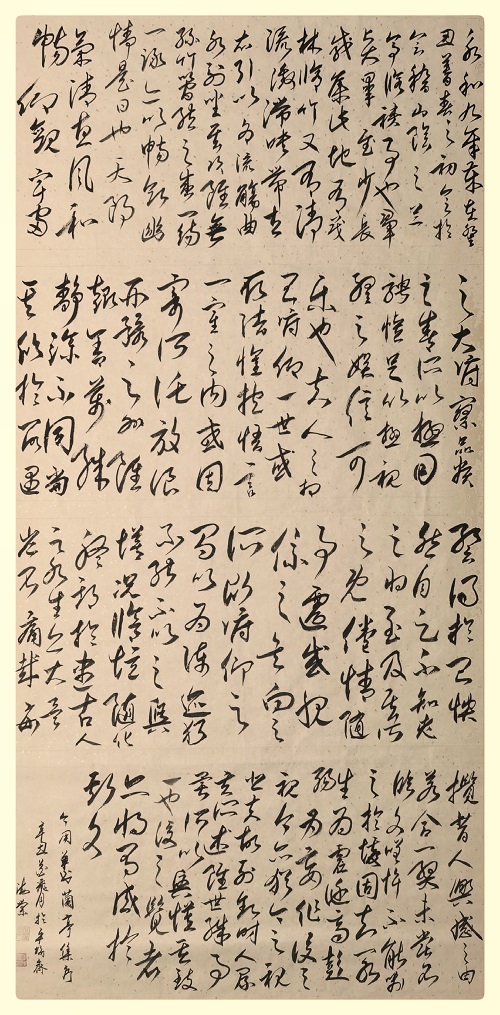 永和九年歲在癸
丑暮春之初會於
會稽山陰之蘭
亭脩禊事也群
賢畢至少長
咸集此地有茂
林脩竹又有清
流激湍映帶左
右引以為流觴曲
水列坐其次雖無
絲竹管絃之盛一觴
一詠亦以暢敘幽
情是日也天朗
氣清惠風和
暢仰觀宇宙
之大俯察品類
之盛所以極目
騁懷足以極視
聽之娛信可
樂也夫人之相
與俯仰一世或
取諸懷抱悟言
一室之內或因
寄所託放浪
形骸之外雖
趣舍萬殊
靜躁不同當
其欣於所遇
暫得於己怏
然自足不知老
之將至及其所
之既倦情隨
事遷感慨
係之矣向之
所欣俯仰之
間以為陳跡猶
不能不以之興
懷況脩短隨化
終期於盡古人
云死生亦大矣
豈不痛哉每
攬昔人興感之由
若合一契未嘗不
臨文嗟悼不能喻
之於懷固知一死
生為虛誕齊彭
殤為妄作後之
視今亦猶今之視
昔夫故列敘時人錄
其所述雖世殊事
異所以興懷其致
一也後之覽者
亦將有感於
斯文
蘭亭集序
辛丑 月於 齋